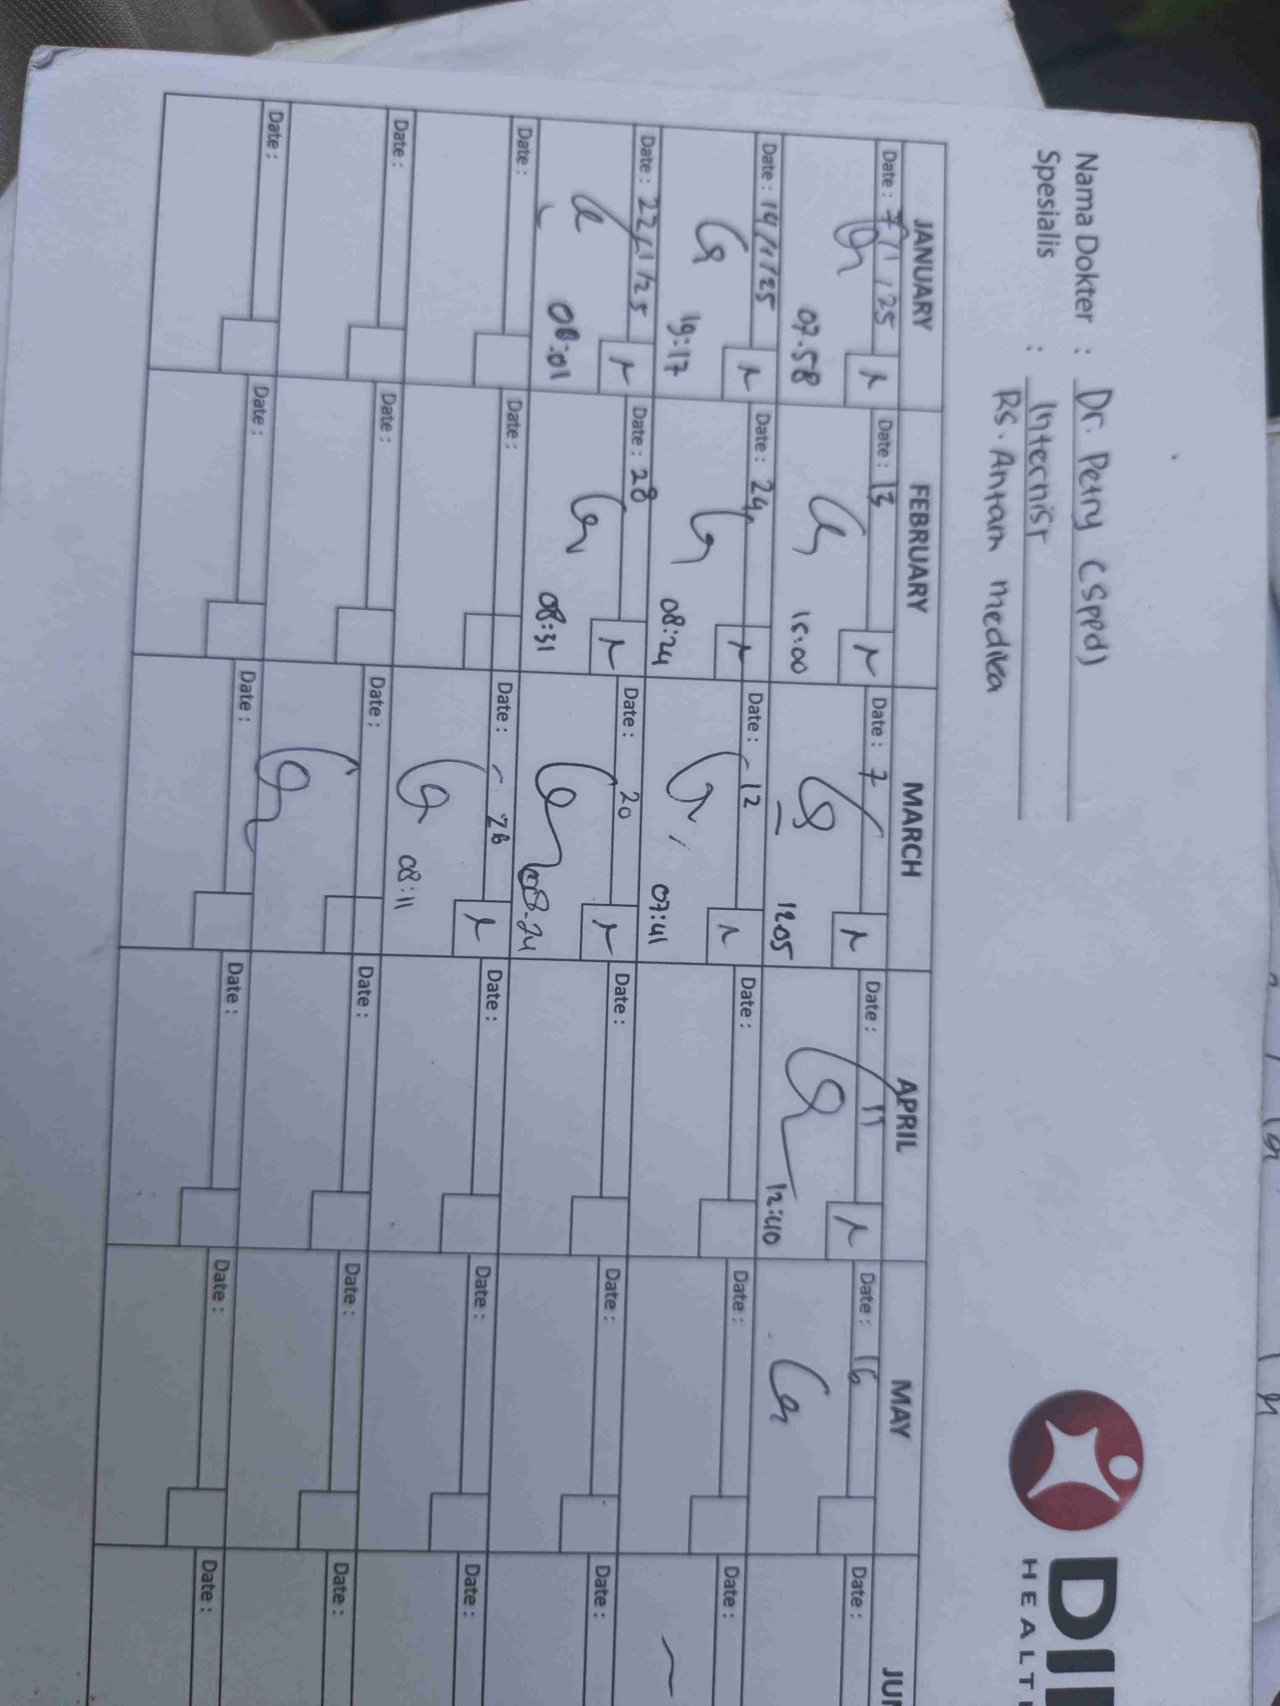 Nama Dokter : Dr. Petry (Sppd)
Spesialis : Internist
Rs. Antam medika
DI
HEALT
JANUARY FEBRUARY MARCH APRIL MAY JU
Date : 7/1/25 N Date : 13 N Date : 7 N Date : 11 N Date : 16 Date :
07.58 15:00 1205 12:40
Date : 14/1/25 N Date : 24 N Date : 12 N Date : Date : Date :
19:17 08:24 07:41
Date : 22/1/25 N Date : 28 N Date : 20 N Date : Date : Date :
08:01 08:31 08.24
Date : Date : Date : 26 N Date : Date : Date :
08:11
Date : Date : Date : Date : Date : Date :
Date : Date : Date : Date : Date : Date :